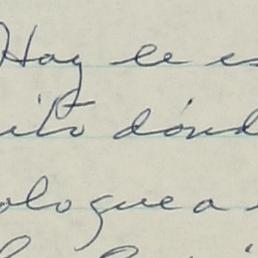 Hoy le es
ito dónd
olo que a